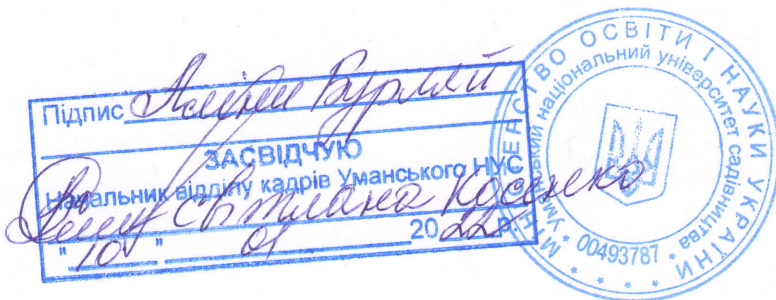 Підпис Аліни Бурляй
ЗАСВІДЧУЮ
Начальник відділу кадрів Уманського НУС
Світлана Косенко
"10" 01 2022р.
МІНІСТЕРСТВО ОСВІТИ І НАУКИ УКРАЇНИ * * * * *
Уманський національний університет садівництва
* 00493787 *